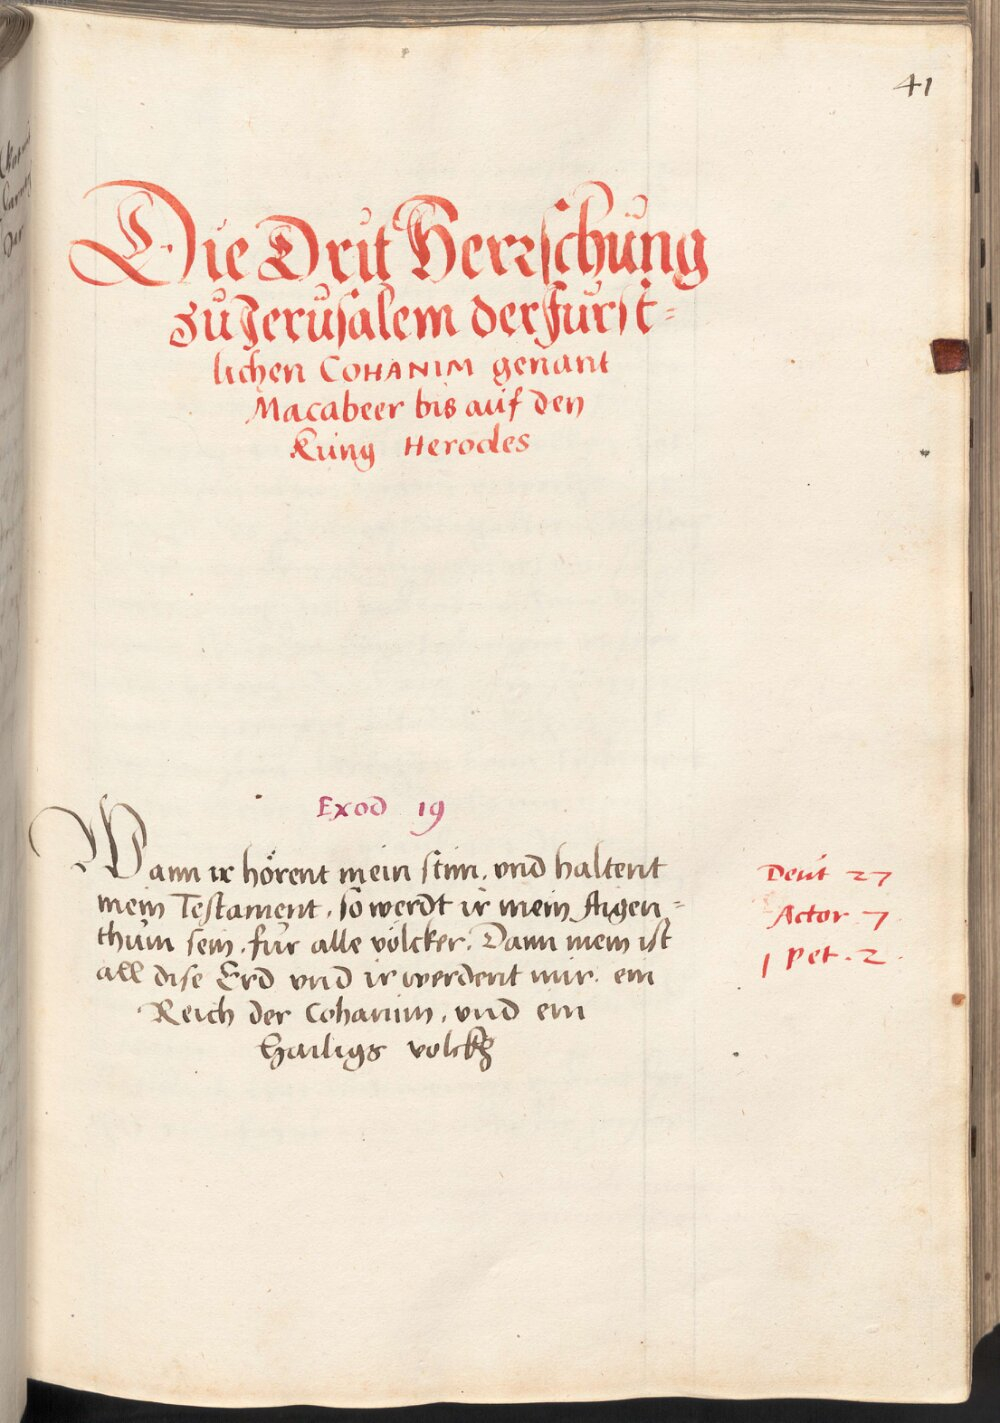 41
Die Drit Herrschung
zu Jerusalem der furst=
lichen COHANIM genant
Macabeer bis auf den
Kung Herodes
Exod 19
Wann ir hörent mein stim, vnd haltent
mein Testament, so werdt ir mein Aigen=
thum sein, fur alle völcker. Dann mein ist
all dise Erd vnd ir werdent mir ein
Reich der Cohanim, vnd ein
hailigs volckh
Deut 27
Actor 7.
1 Pet. 2.